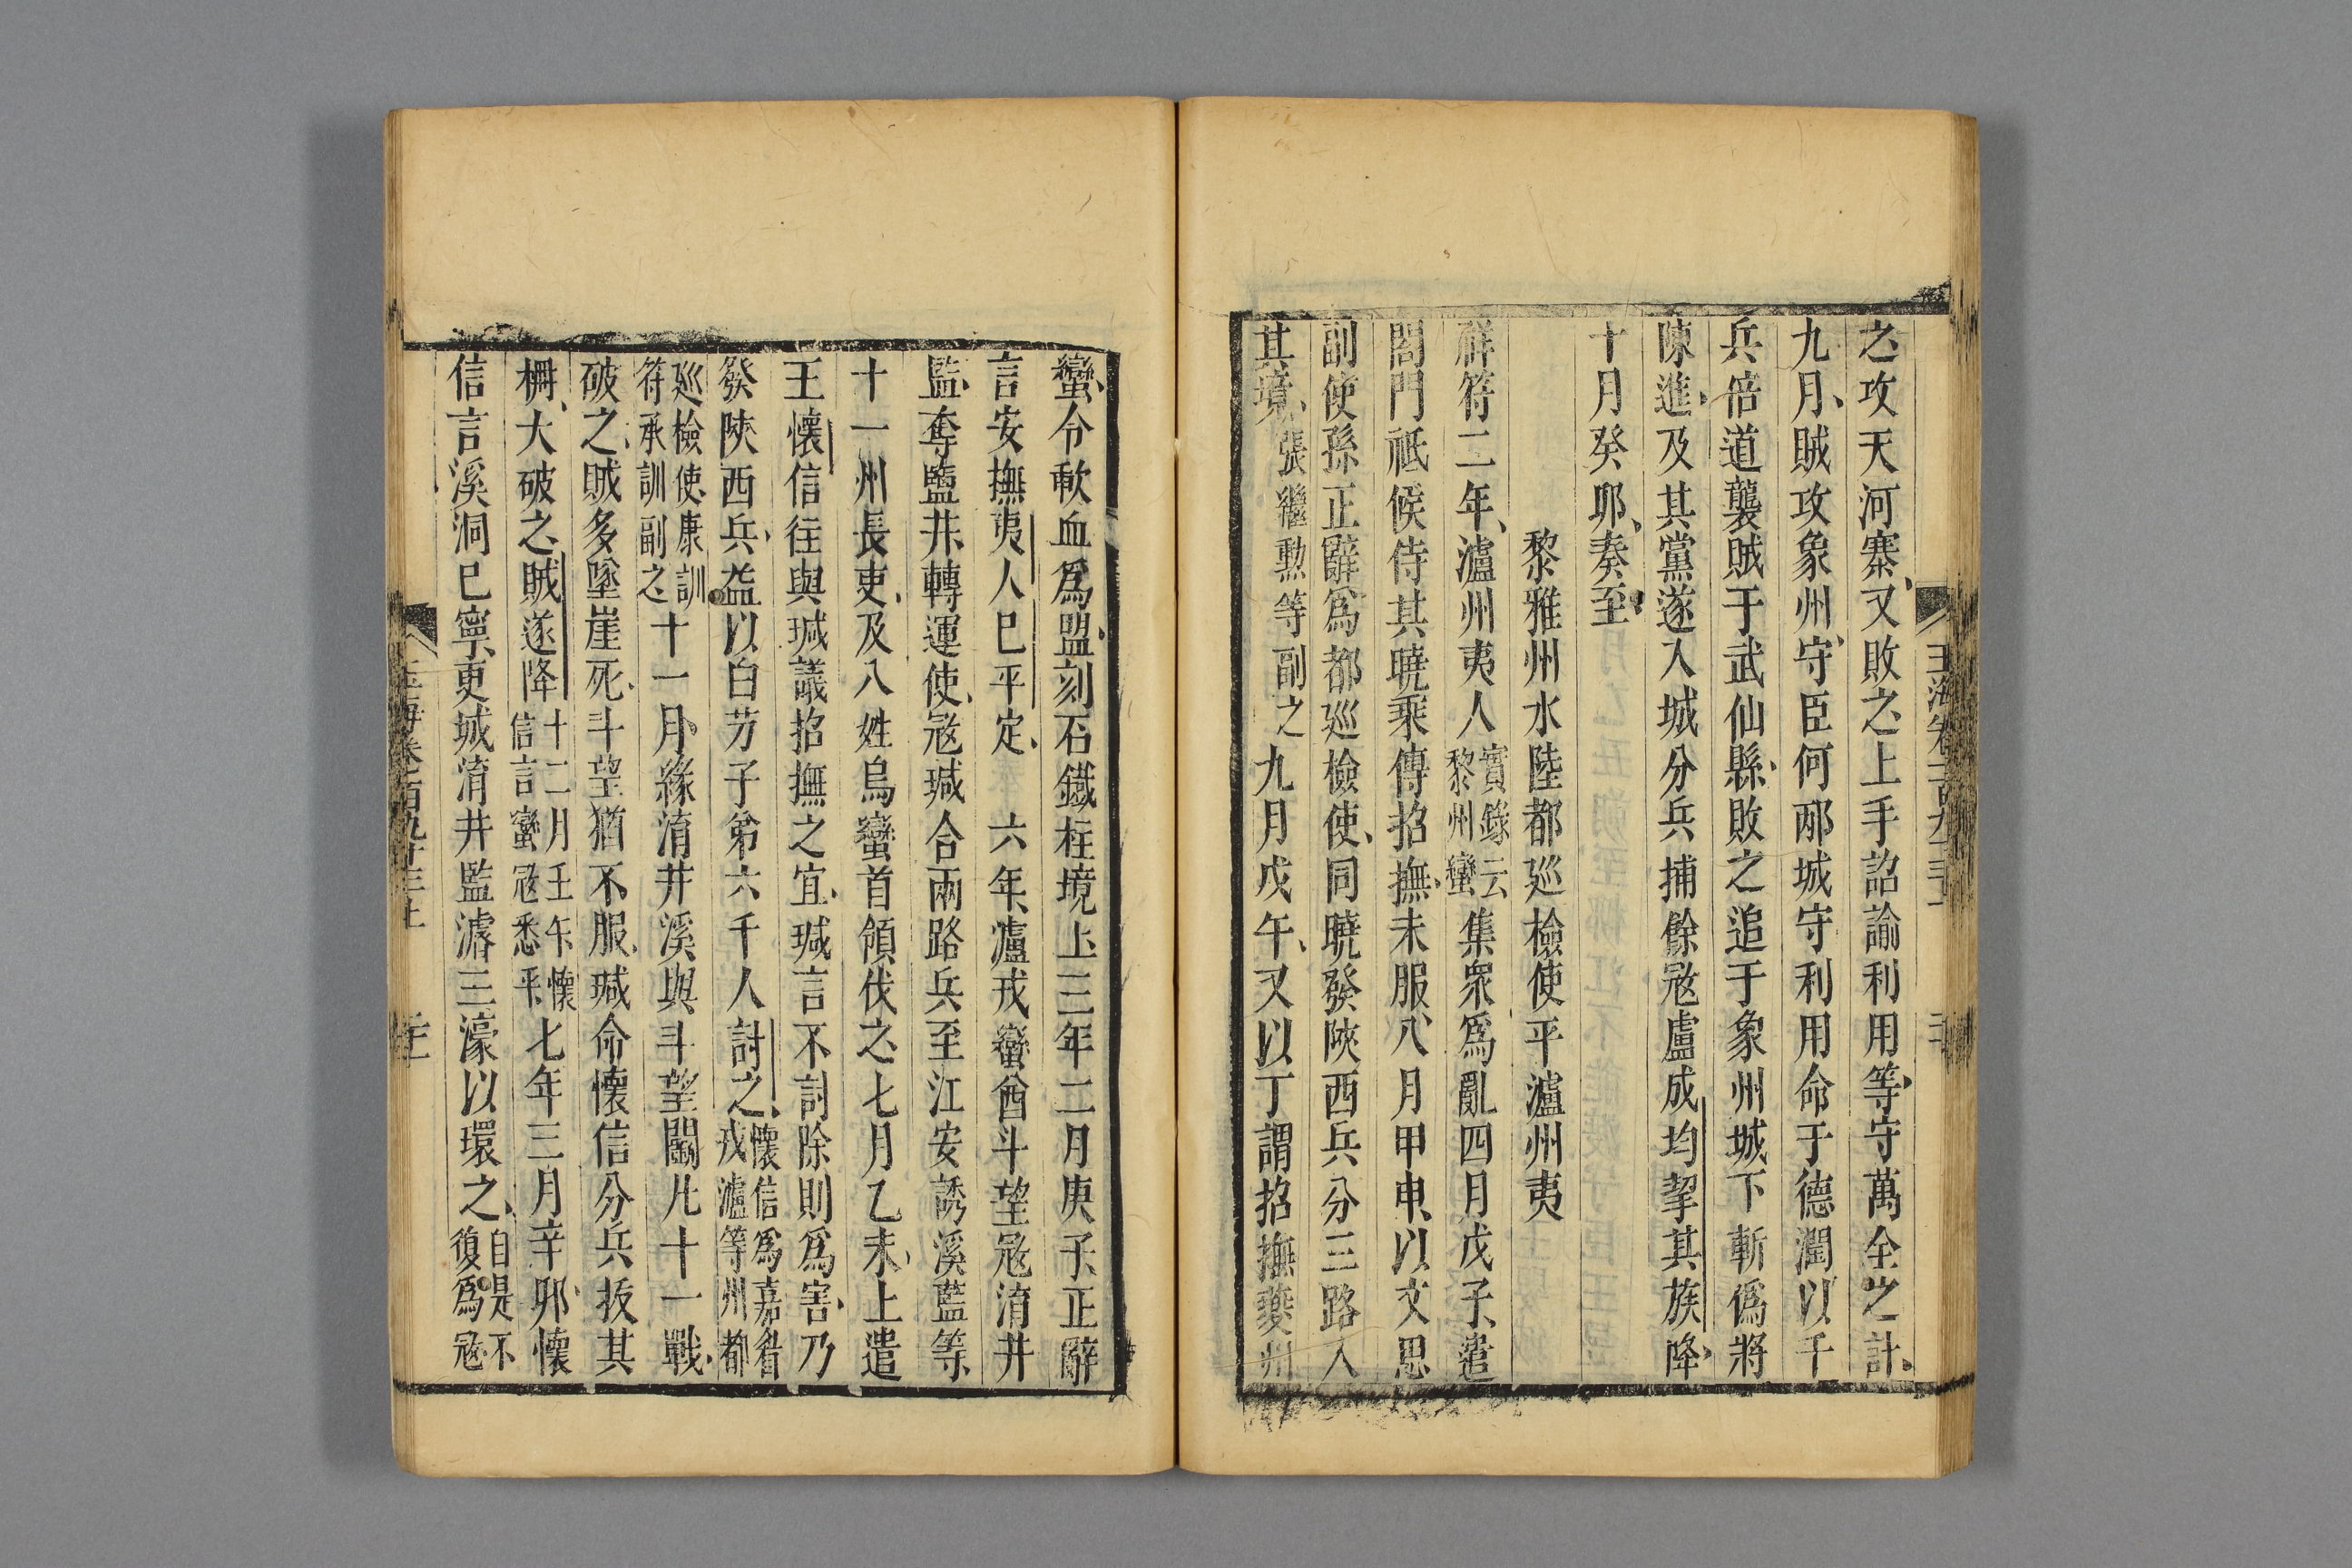 之攻天河寨又敗之上手詔諭利用等守萬全之計
九月賊攻象州守臣何邴城守利用命于德潤以千
兵倍道襲賊于武仙縣敗之追于象州城下斬僞將
陳進及其黨遂入城分兵捕餘冦盧成均挈其族降
十月癸卯奏至
黎雅州水陸都巡檢使平瀘州夷
祥符二年瀘州夷人實錄云黎州蠻集衆爲亂四月戊子遣
閤門祗候侍其曉乘傳招撫未服八月甲申以文思
副使孫正辭爲都巡檢使同曉發陝西兵分三路入
其境張繼勲等副之九月戊午又以丁謂招撫夔州
蠻令歃血爲盟刻石鐵柱境上三年二月庚子正辭
言安撫夷人已平定 六年瀘戎蠻酋斗望冦淯井
監奪鹽井轉運使冦瑊合兩路兵至江安誘溪藍等
十一州長吏及八姓烏蠻首領伐之七月乙未上遣
王懷信往與瑊議招撫之宜瑊言不討除則爲害乃
發陝西兵益以白芀子弟六千人討之懷信爲嘉眉戎瀘等州都
巡檢使康訓符承訓副之十一月緣淯井溪與斗望鬬凡十一戰
破之賊多墜崖死斗望猶不服瑊命懷信分兵拔其
柵大破之賊遂降十二月壬午懷信言蠻冦悉平七年三月辛卯懷
信言溪洞已寧更城淯井監濬三濠以環之自是不復爲冦
玉海卷